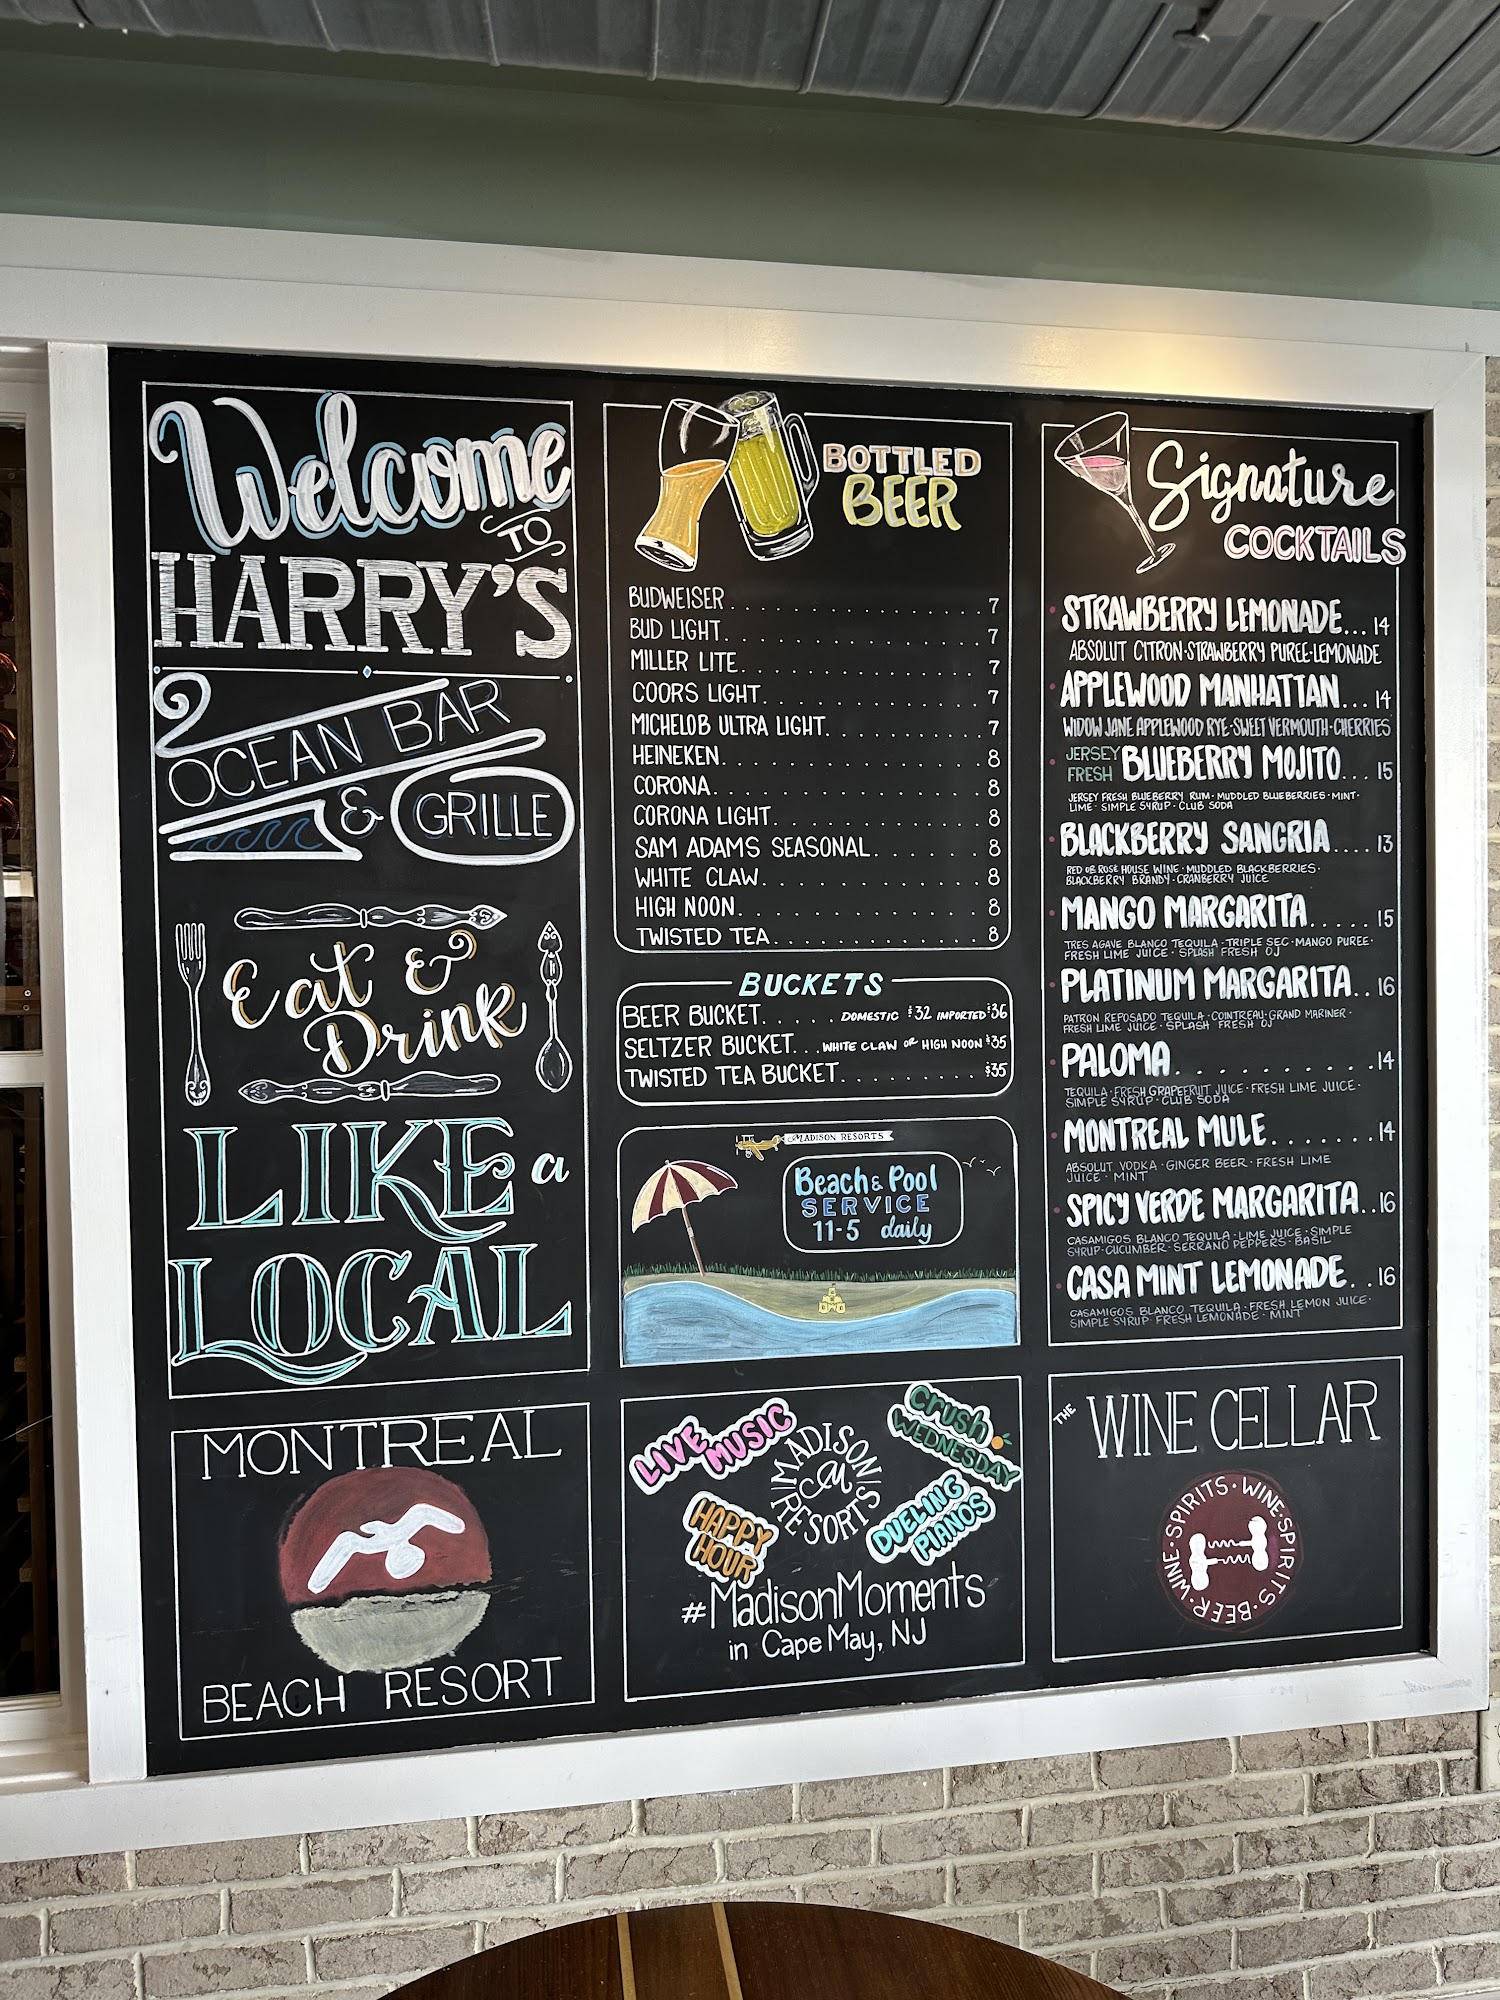 Welcome
TO
HARRY'S
OCEAN BAR
& GRILLE
Eat &
Drink
LIKE a
LOCAL
MONTREAL
BEACH RESORT
BOTTLED
BEER
BUDWEISER . . . . . . . . . . . . . . . . 7
BUD LIGHT. . . . . . . . . . . . . . . . 7
MILLER LITE. . . . . . . . . . . . . . . 7
COORS LIGHT. . . . . . . . . . . . . . 7
MICHELOB ULTRA LIGHT. . . . . . . . . . 7
HEINEKEN. . . . . . . . . . . . . . . . 8
CORONA. . . . . . . . . . . . . . . . . 8
CORONA LIGHT. . . . . . . . . . . . . 8
SAM ADAMS SEASONAL. . . . . . 8
WHITE CLAW. . . . . . . . . . . . . . 8
HIGH NOON. . . . . . . . . . . . . . . 8
TWISTED TEA. . . . . . . . . . . . . 8
BUCKETS
BEER BUCKET. . . . . DOMESTIC $32 IMPORTED $36
SELTZER BUCKET. . . WHITE CLAW OR HIGH NOON $35
TWISTED TEA BUCKET. . . . . . . . . $35
MADISON RESORTS
Beach & Pool
SERVICE
11-5 daily
LIVE MUSIC
MADISON RESORTS
Crush WEDNESDAY
HAPPY HOUR
DUELING PIANOS
#MadisonMoments
in Cape May, NJ
Signature
COCKTAILS
STRAWBERRY LEMONADE... 14
ABSOLUT CITRON·STRAWBERRY PUREE·LEMONADE
APPLEWOOD MANHATTAN... 14
WIDOW JANE APPLEWOOD RYE·SWEET VERMOUTH·CHERRIES
JERSEY FRESH BLUEBERRY MOJITO... 15
JERSEY FRESH BLUEBERRY RUM · MUDDLED BLUEBERRIES · MINT ·
LIME · SIMPLE SYRUP · CLUB SODA
BLACKBERRY SANGRIA .... 13
RED OR ROSE HOUSE WINE · MUDDLED BLACKBERRIES ·
BLACKBERRY BRANDY · CRANBERRY JUICE
MANGO MARGARITA..... 15
TRES AGAVE BLANCO TEQUILA · TRIPLE SEC · MANGO PUREE ·
FRESH LIME JUICE · SPLASH FRESH OJ
PLATINUM MARGARITA.. 16
PATRON REPOSADO TEQUILA · COINTREAU · GRAND MARINER ·
FRESH LIME JUICE · SPLASH FRESH OJ
PALOMA. . . . . . . . . . 14
TEQUILA · FRESH GRAPEFRUIT JUICE · FRESH LIME JUICE ·
SIMPLE SYRUP · CLUB SODA
MONTREAL MULE....... 14
ABSOLUT VODKA · GINGER BEER · FRESH LIME
JUICE · MINT
SPICY VERDE MARGARITA.. 16
CASAMIGOS BLANCO TEQUILA · LIME JUICE · SIMPLE
SYRUP · CUCUMBER · SERRANO PEPPERS · BASIL
CASA MINT LEMONADE.. 16
CASAMIGOS BLANCO TEQUILA · FRESH LEMON JUICE ·
SIMPLE SYRUP · FRESH LEMONADE · MINT
THE WINE CELLAR
WINE · SPIRITS · WINE · SPIRITS · BEER ·